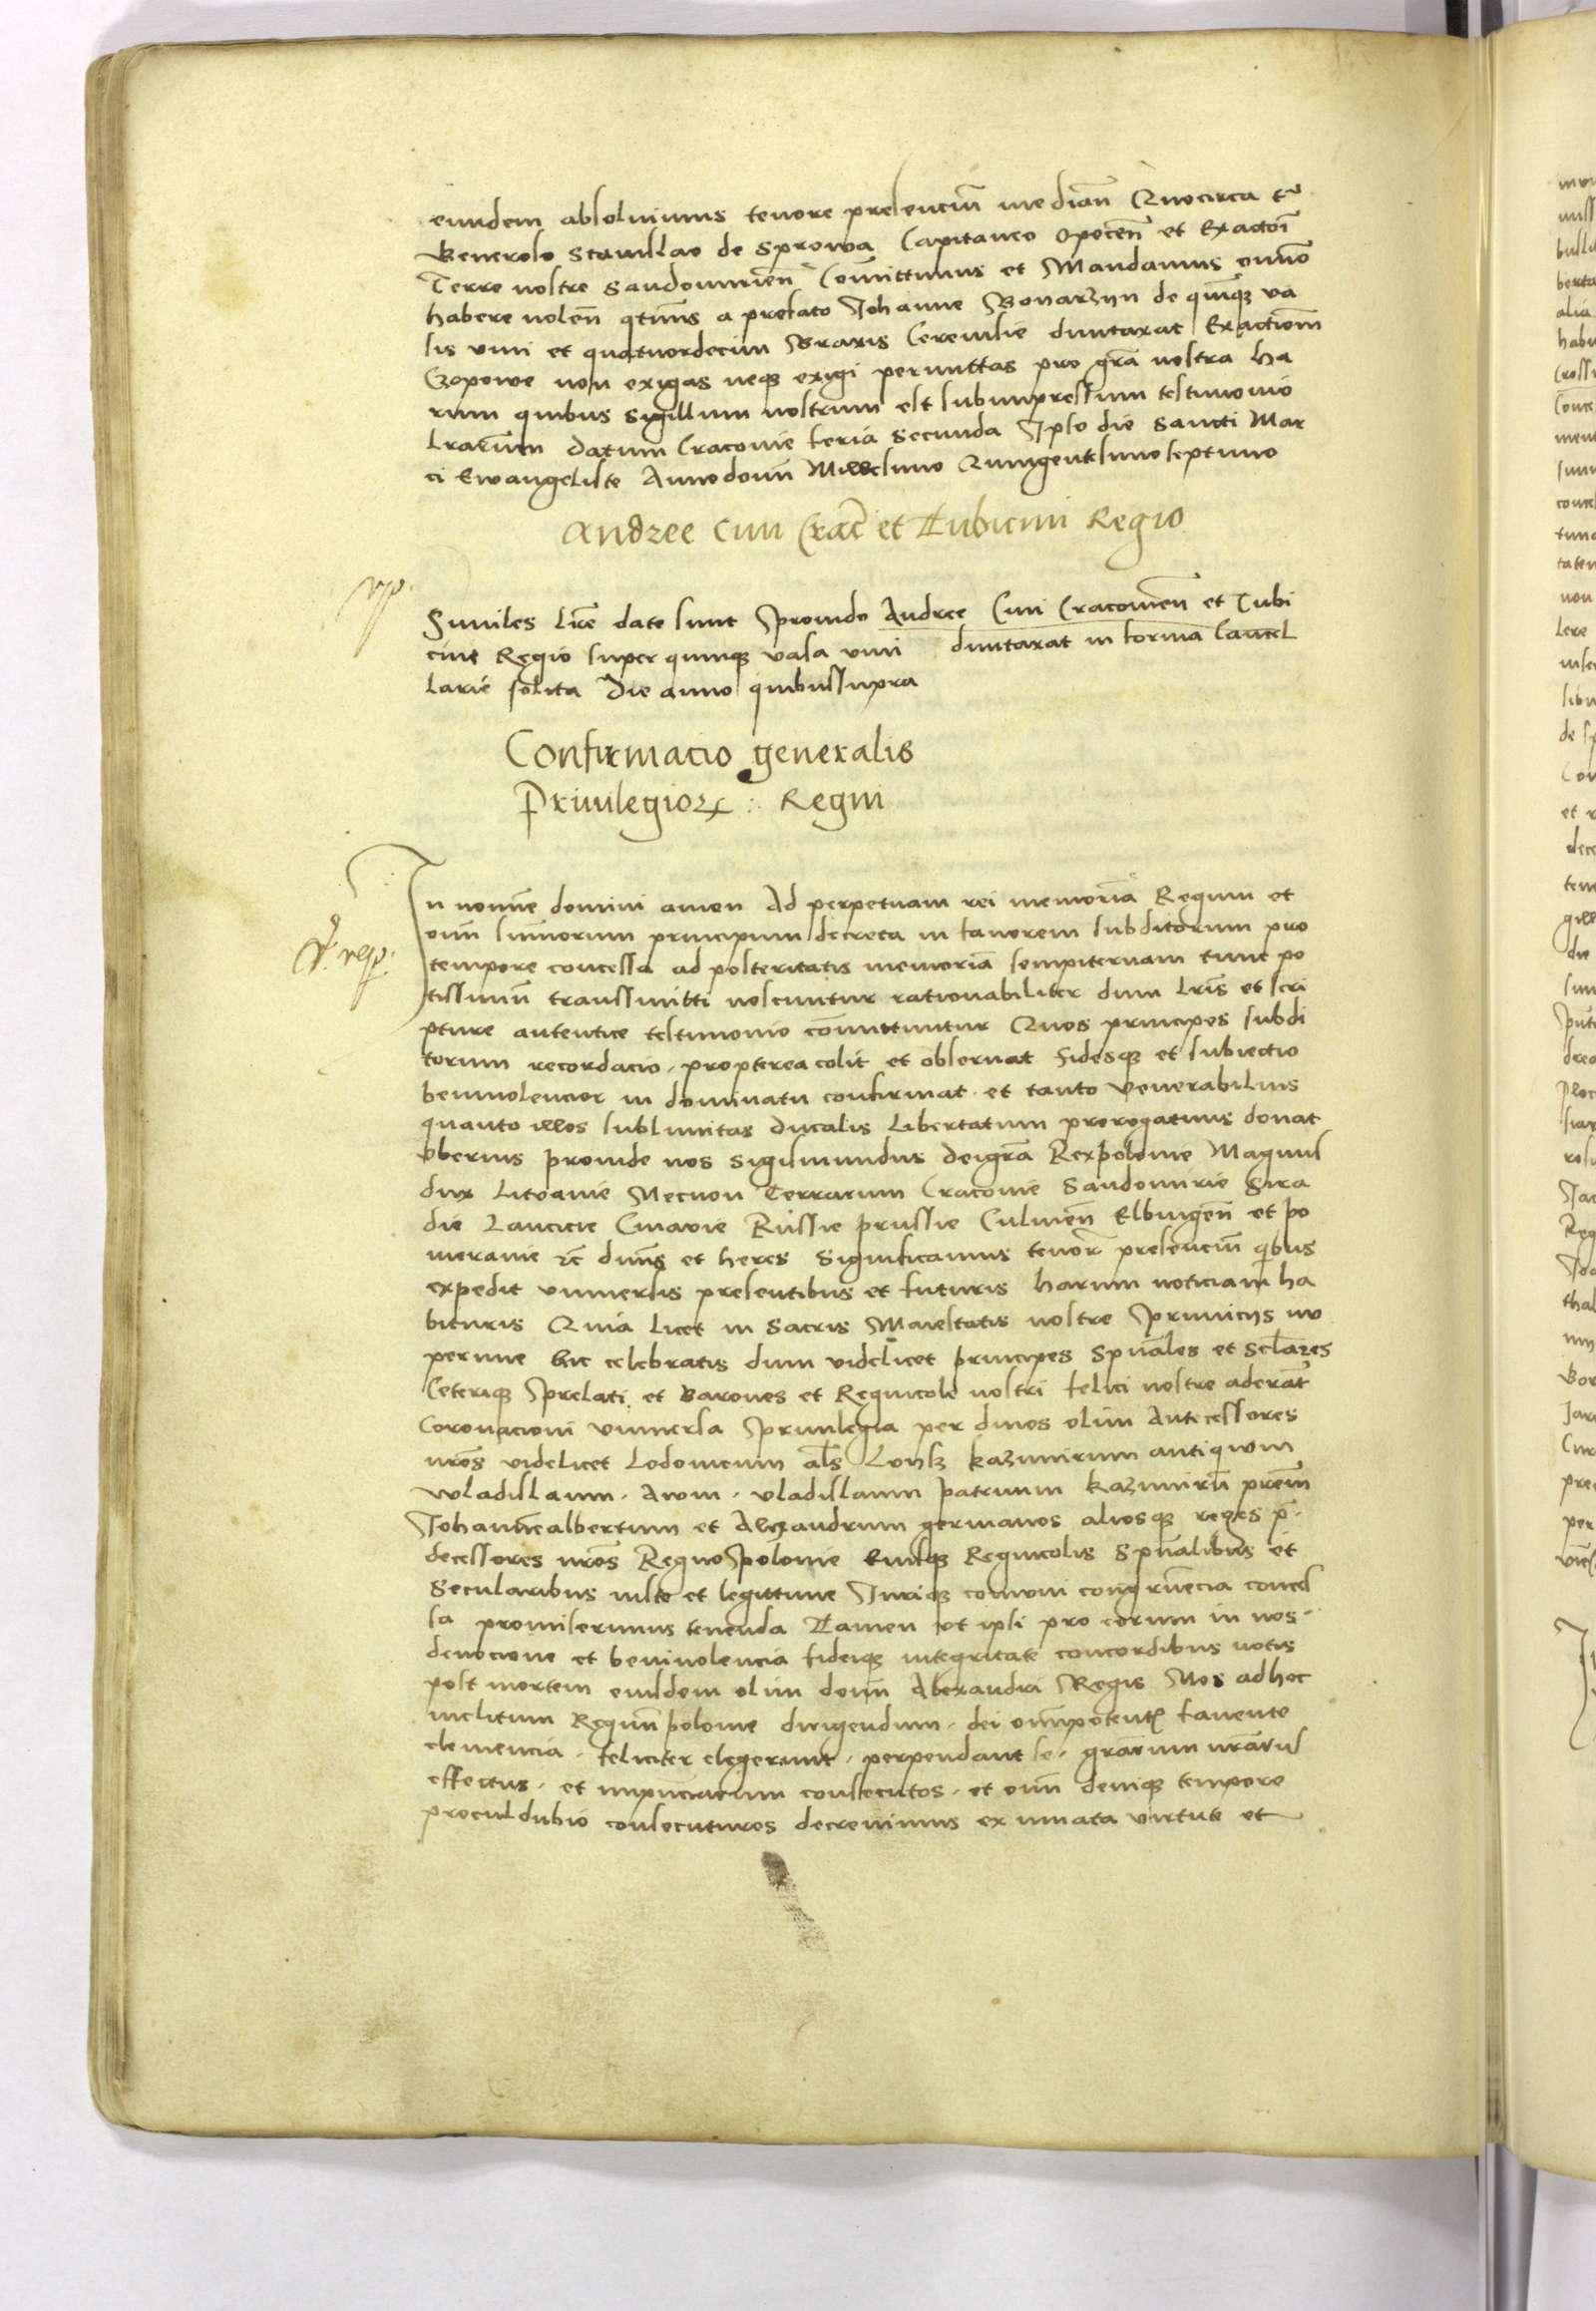 eundem absoluimus tenore presencium median Quocirca t
Generoso Stanislao de Sprowa Capitaneo Opocen et Exactori
Terre nostre Sandomirien Comittimus et Mandamus omno
habere volen qtinus a prefato Johanne Bonarzyn de quinqz va
sis vini et quatuordecim Braxis Cerevisie duntaxat Exactiom
Czopowe non exigas neqz exigi permittas pro gra nostra ha
rum quibus Sigillum nostrum est subimpressum testimonio
lrarum Datum Cracouie feria Secunda Ipso die Sancti Mar
ci Ewangeliste Anno domi Millesimo Quingentesimo septimo
Andree Ciui Crac et Tubicini Regio
Similes lre date sunt Prouido Andree Ciui Cracouien et Tubi
cini Regio super quinqz vasa vini duntaxat in forma Cancel
larie solita Die anno quibussupra
Confirmacio generalis
Priuilegiorum Regni
In nomine domini amen Ad perpetuam rei memoria Regum et
oim summorum principum decreta in fauorem subditorum pro
tempore concessa ad posteritatis memoria sempiternam tunc po
tissimum transsmitti noscuntur rationabiliter dum lris et scri
pture autentice testimonio comittuntur Quos principes subdi
torum recordacio propterea colit et obseruat fidesqz et subiectio
beniuolencior in dominatu confirmat et tanto venerabilius
quanto illos sublimitas ducalis libertatum prerogatiuis donat
vberius proinde nos Sigismundus deigra Rexpolonie Magnus
dux Litvanie Necnon Terrarum Cracouie Sandomirie Sira
die Lancicie Cuiauie Russie prussie Culmen Elbingen et po
meranie zc dnus et heres Significamus tenor presencium qibus
expedit vniuersis presentibus et futuris harum noticiam ha
bituris Quia licet in Sacris Maiestatis nostre Primicijs nu
perime hic celebratis dum videlicet principes Spuales et Sclares
Ceteriqz Prelati et Barones et Regnicole nostri felici nostre aderat
Coronacioni vniuersa Priuilegia per diuos olim Antecessores
nros videlicet Lodouicum als Loysz kazimirum antiquom
wladislaum Awm vladislaum patruum kazimiru prem
Johannealbertum et Alexandrum germanos aliosqz reges p
decessores nros Regno Polonie Eiusqz Regnicolis Spualibus et
Secularibus iuste et legittime Juriqz comoni congruencia conces
sa promiserimus tenenda Tamen vt ipsi pro eorum in nos
deuocione et beniuolencia fideiqz integritate concordibus votis
post mortem eiusdem olim domi Alexandri Regis Nos ad hoc
inclitum Regnu polonie dirigendum dei omipotentis fauente
clemencia feliciter elegerunt perpendant se grarium nrarus
effectus et consecutos et oim deniqz tempore
proculdubio consecuturos decreuimus ex innata virtute et